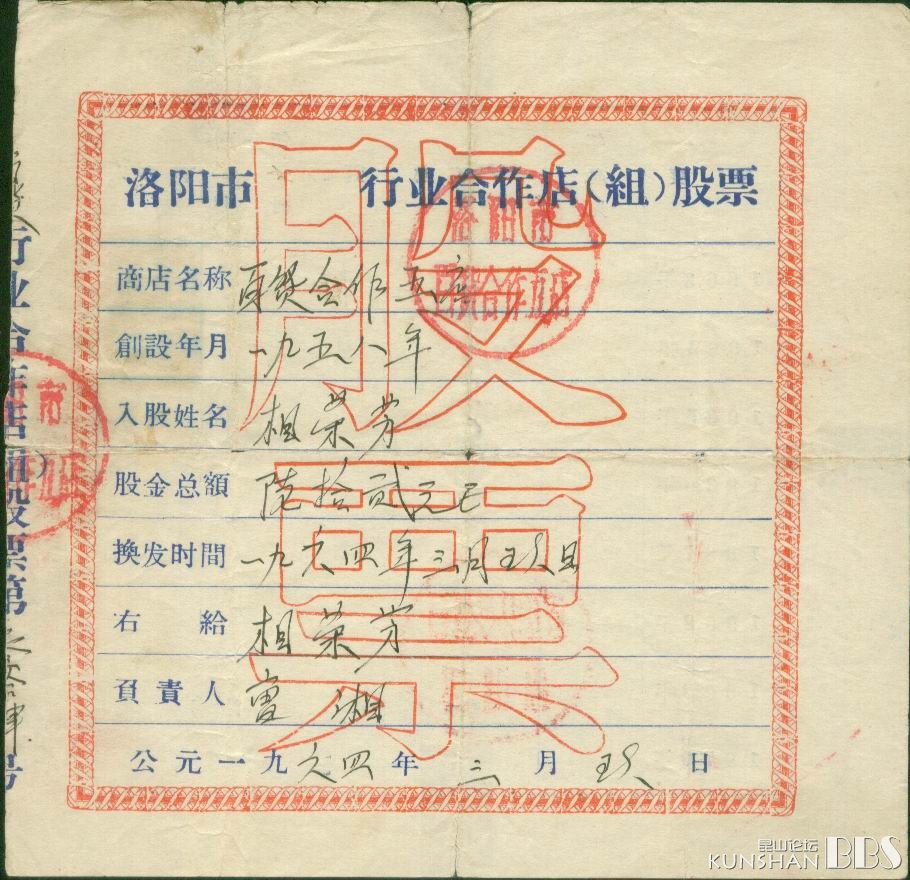 洛阳市 行业合作店(組)股票
商店名称 百貨合作五店
創設年月 一九五八年
入股姓名 相荣芳
股金总額 陆拾贰元正
换发时間 一九六四年三月玖日
右 給 相荣芳
負責人 曹湘
公元一九六四年 三 月 玖 日
股票
洛阳市
百貨合作五店
行业合作店(組)股票第 号
昆山论坛
KUNSHAN BBS